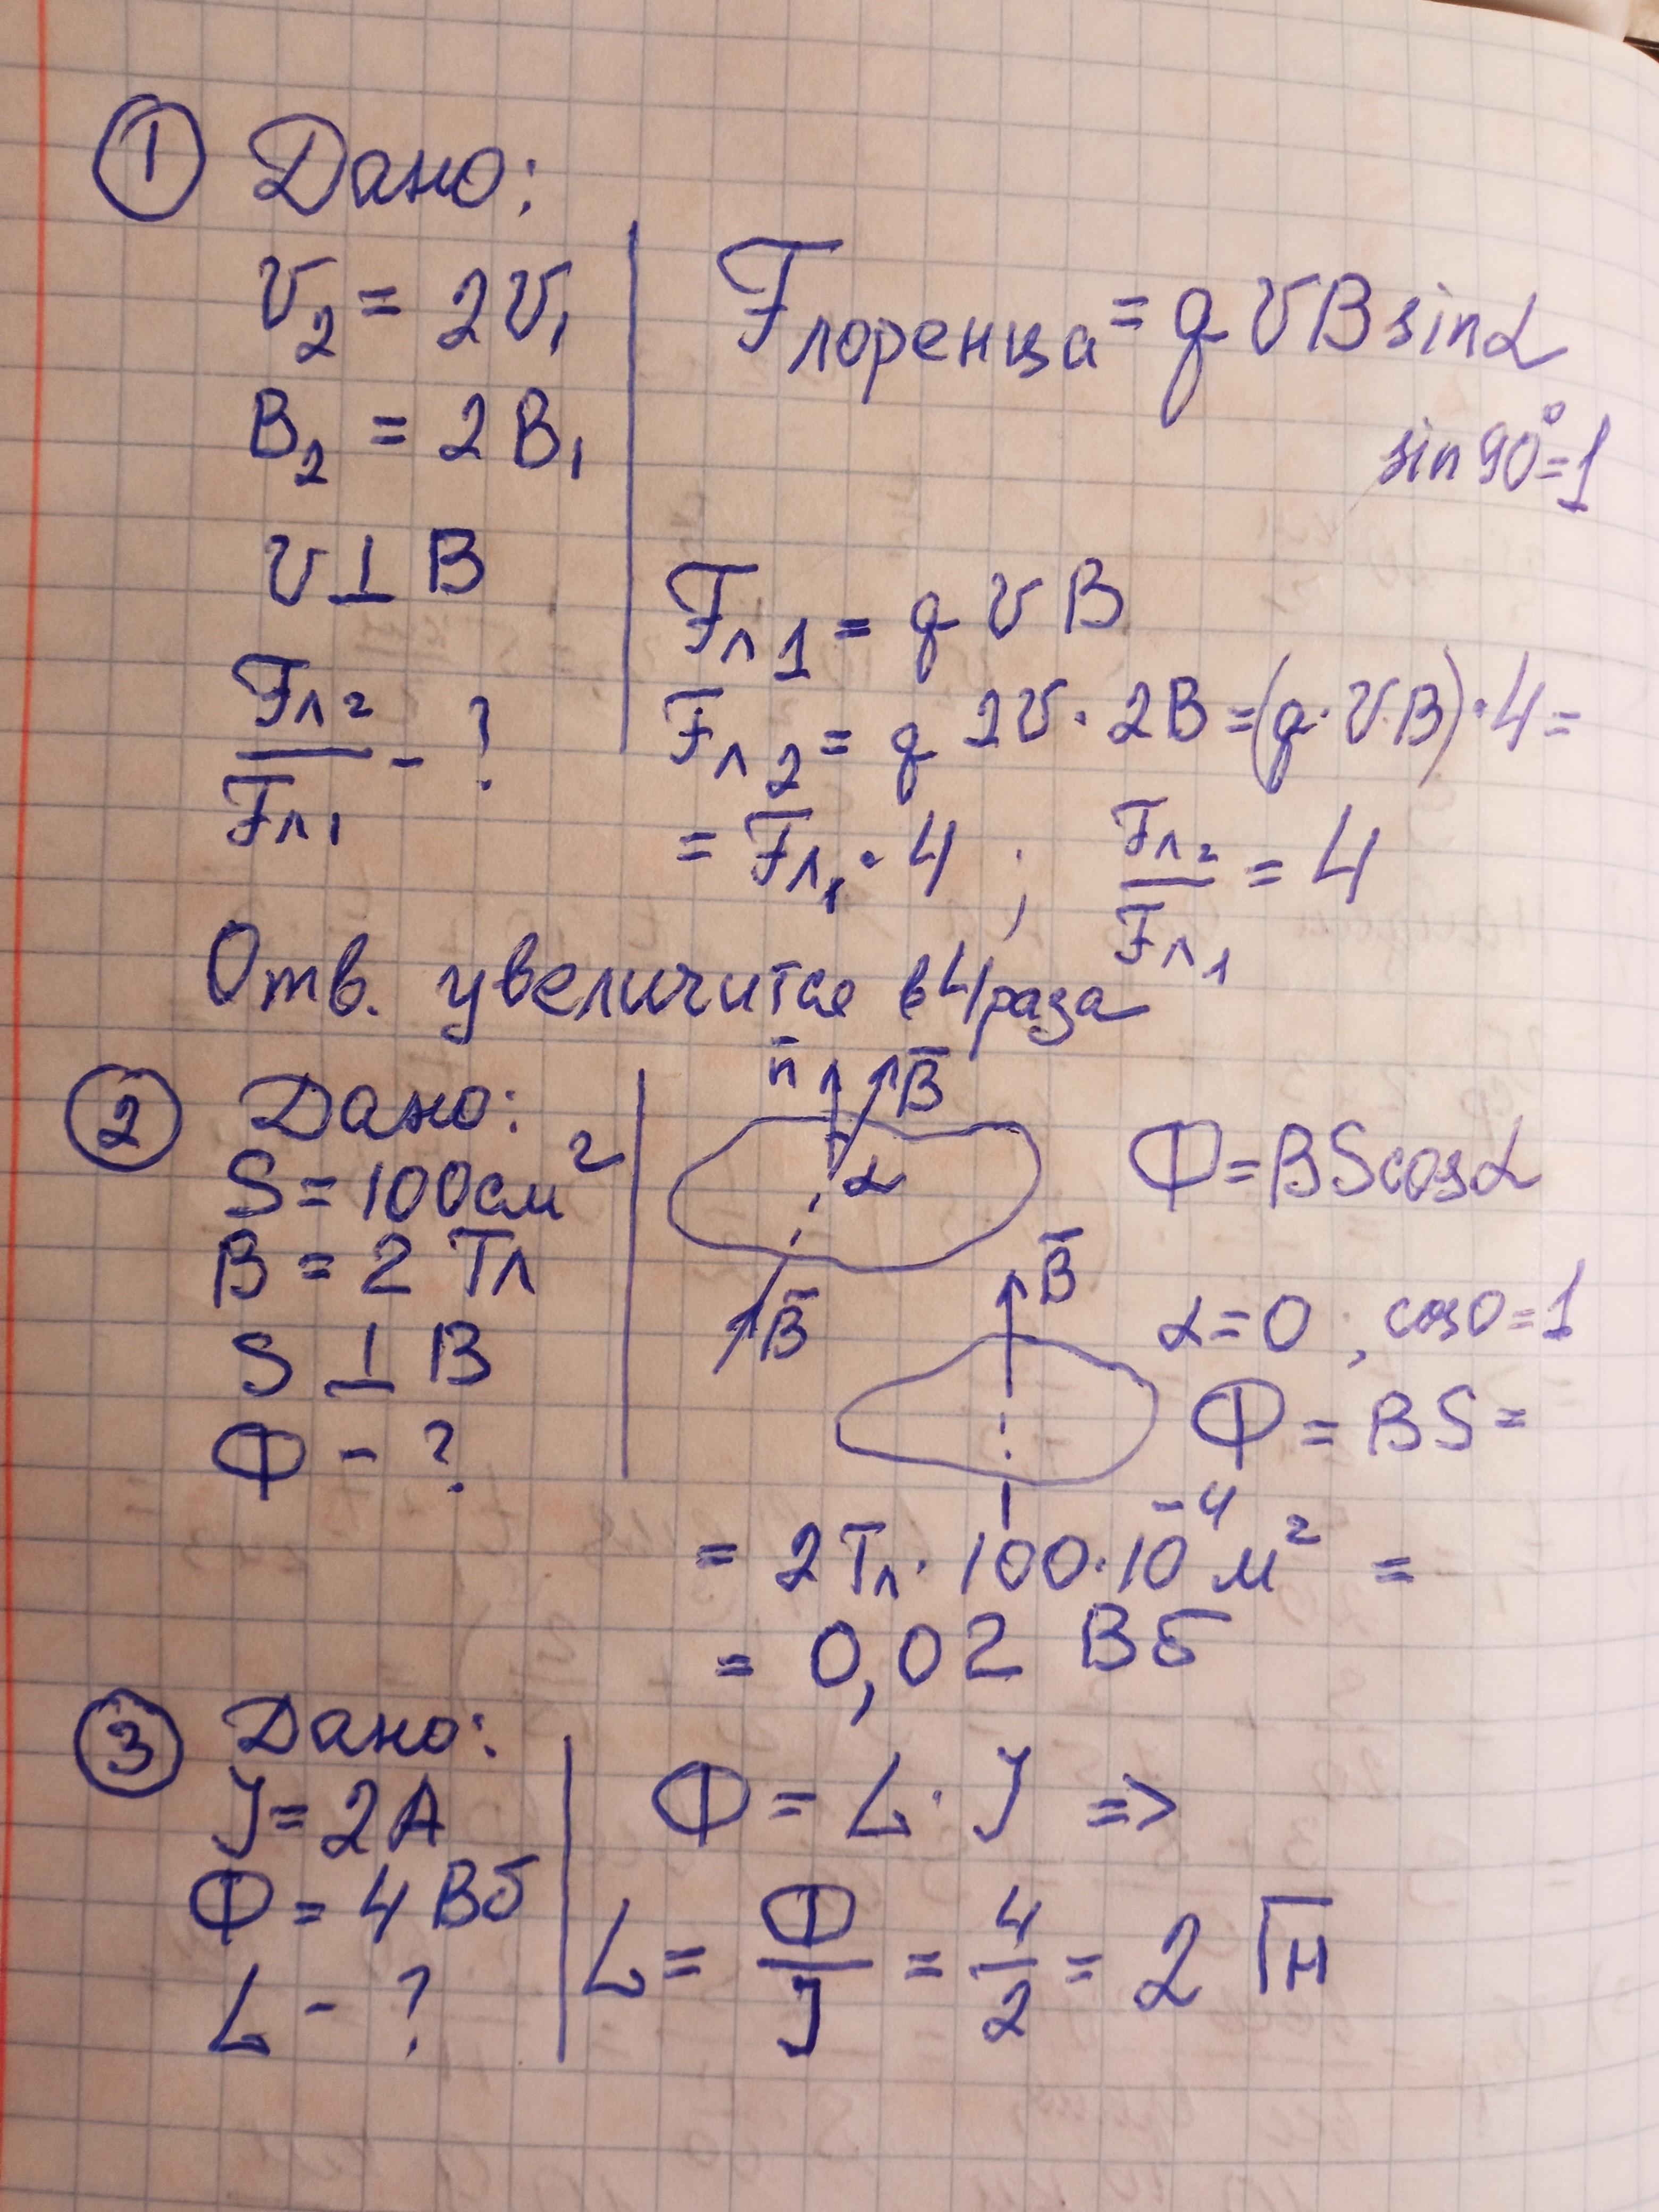 ① Дано:
v₂ = 2v₁
B₂ = 2B₁
v ⊥ B
Fл₂/Fл₁ - ?
Fлоренца = qvB sinα
sin90°=1
Fл1 = qvB
Fл2 = q 2v · 2B = (q·v·B)·4 =
= Fл₁ · 4 ; Fл₂/Fл₁ = 4
Отв. увеличится в 4 раза
② Дано:
S = 100см²
B = 2 Тл
S ⊥ B
Ф - ?
n̄ B̄
α
B̄
Ф = BS cosα
B̄
α = 0 ; cos0 = 1
Ф = BS =
= 2Тл · 100·10⁻⁴ м² =
= 0,02 Вб
③ Дано:
J = 2А
Ф = 4 Вб
L - ?
Ф = L · J =>
L = Ф/J = 4/2 = 2 Гн